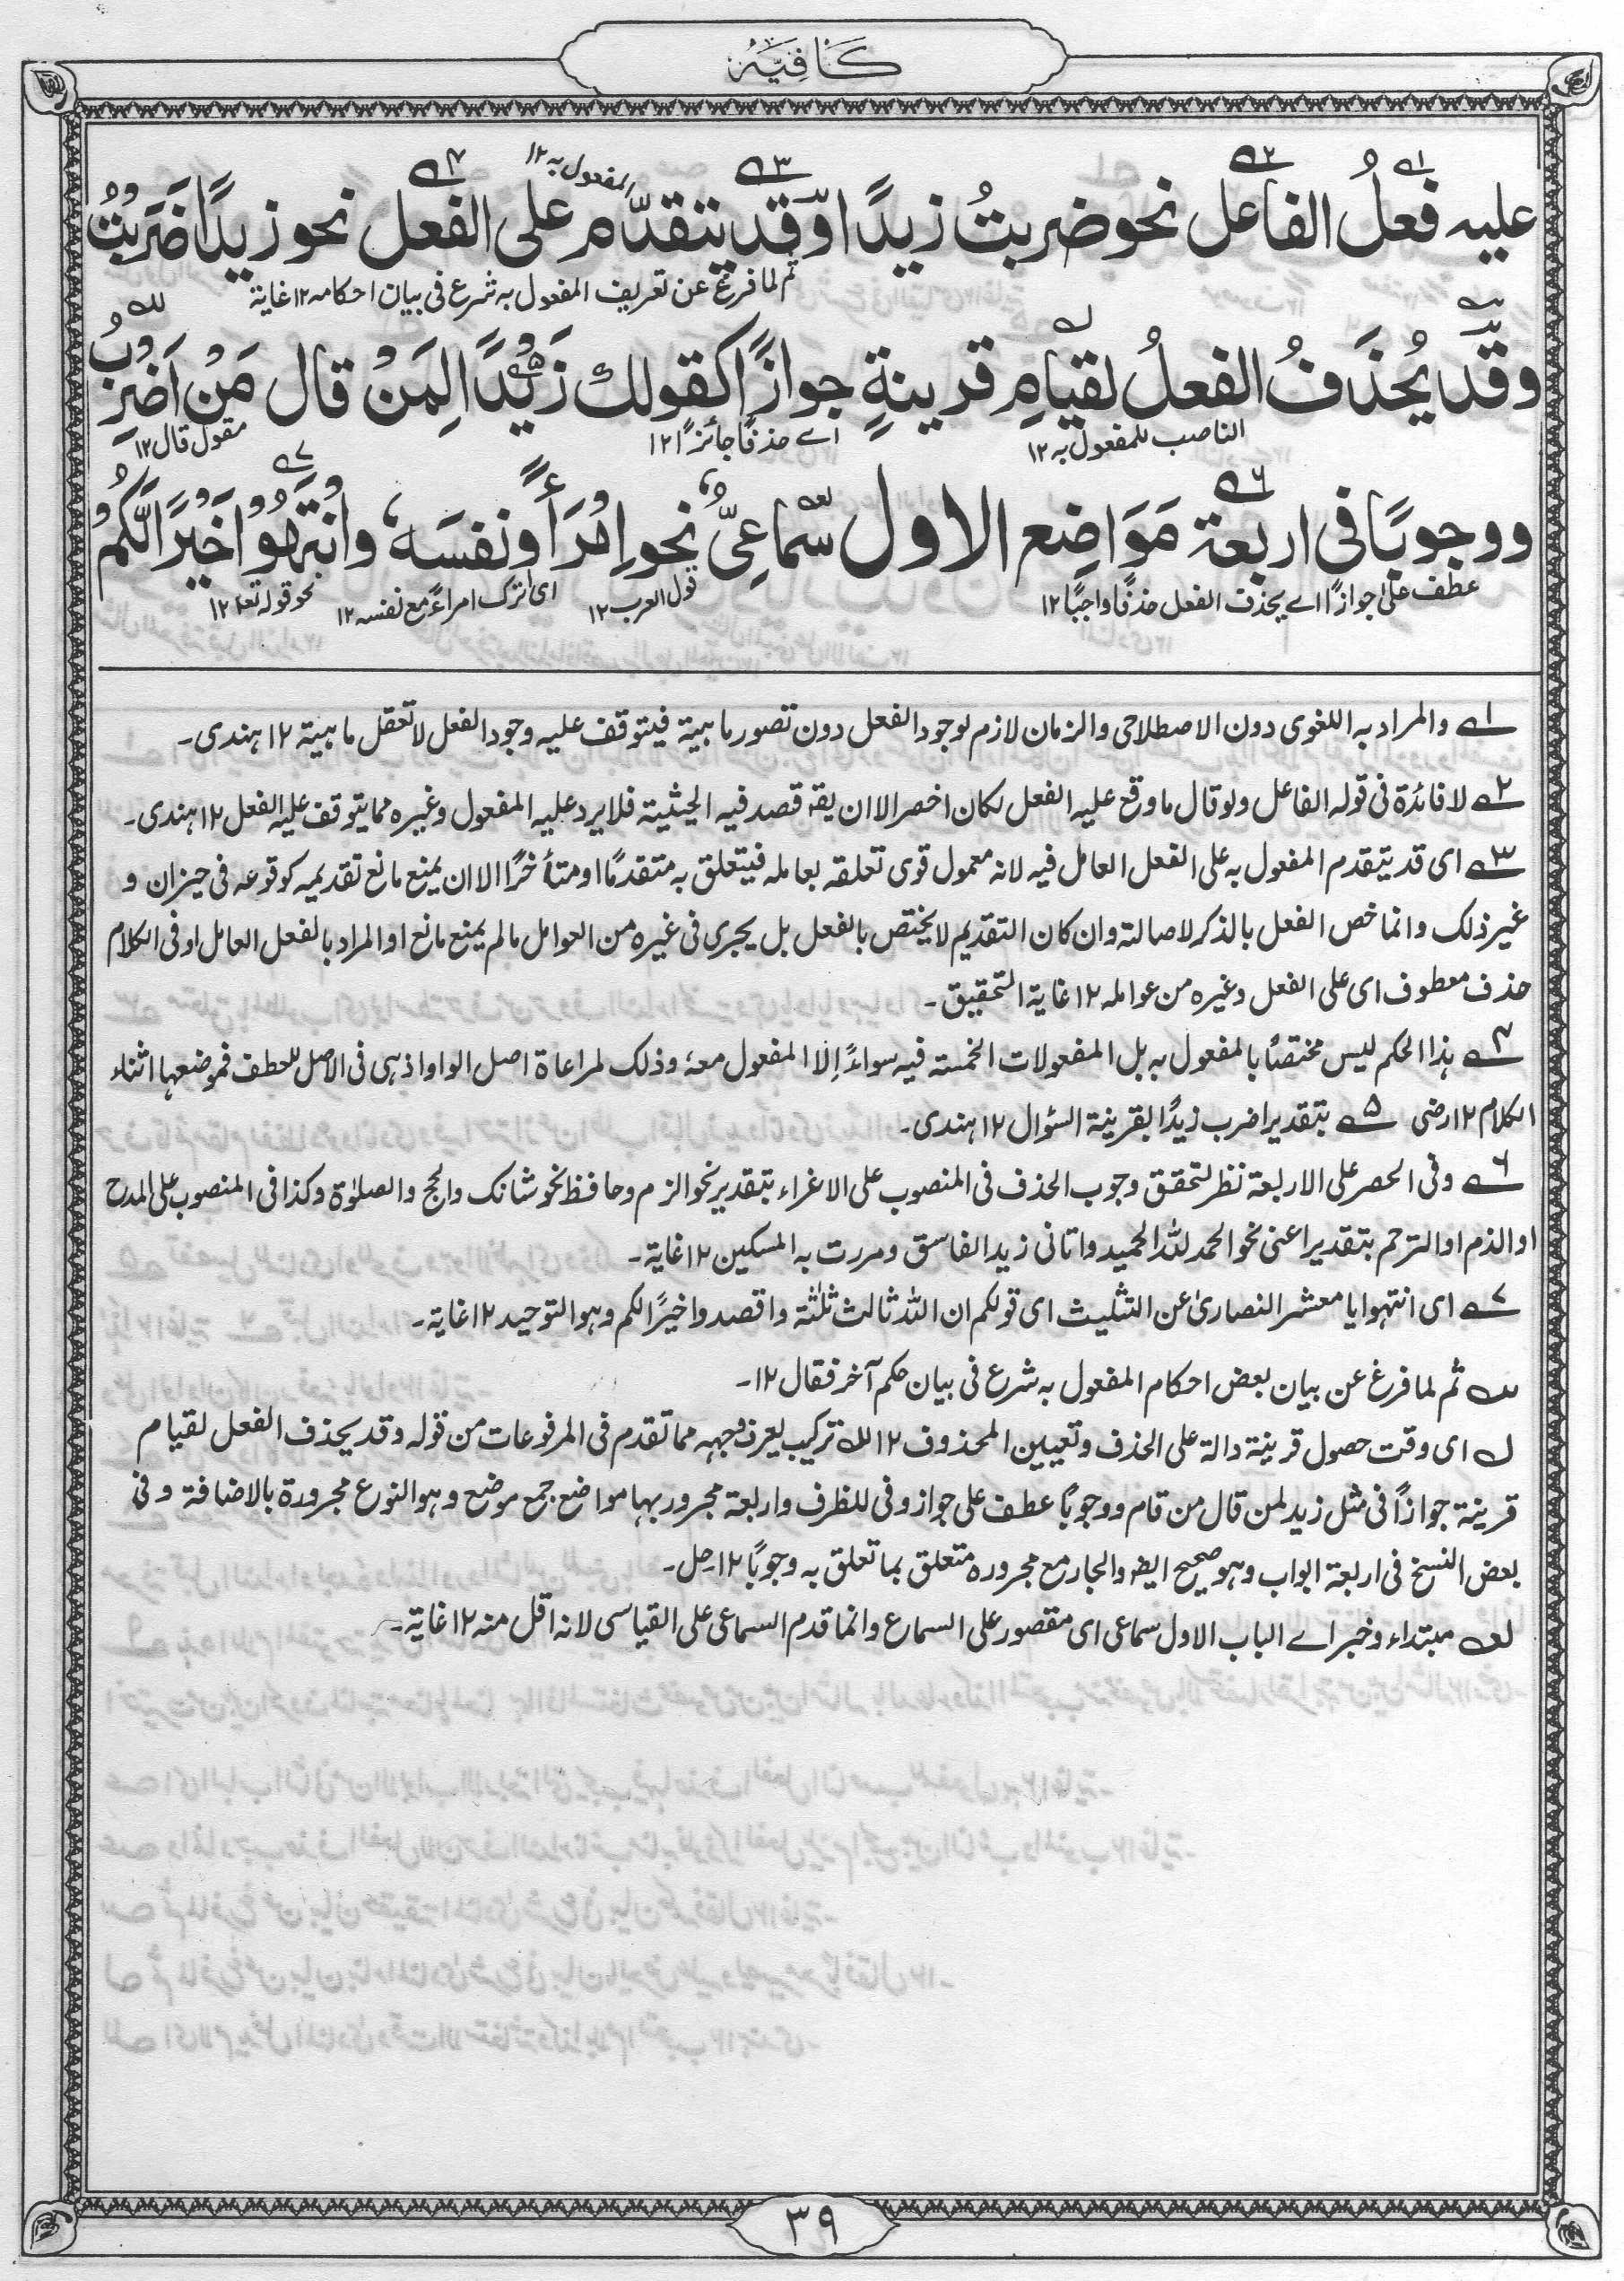 كَافِيَہ
۱ ۲ ۳ المفعول بہ ۱۲ ۴
عليہ فعلُ الفاعل نحو ضربتُ زيدًا وقد يتقدّم على الفعل نحو زيدًا ضَرَبتُ
ثم لما فرغ عن تعريف المفعول بہ شرع فى بيان احكامہ ۱۲ غاية
وقد يُحذَفُ الفعلُ لقيامِ قرينةٍ جوازًا كقولك زَيْدًا لِمَنْ قال مَنْ اَضْرِبُ
الناصب للمفعول بہ ۱۲ اے حذفًا جائزًا ۱۲ مقول قال ۱۲
ووجوبًا فى اربعة مَوَاضِع الاول سماعِىٌّ نحو اِمْرَأً ونفسَہ، وانْتَهُوْا خَيْرًا لَّكُمْ
عطف على جوازًا اے يحذف الفعل حذفًا واجبًا ۱۲ قول العرب ۱۲ اى اترك امرأً مع نفسہ ۱۲ نحو قولہ تعہ ۱۲
۱ والمراد بہ اللغوى دون الاصطلاحى والزمان لازم لوجود الفعل دون تصور ماہيتہ فيتوقف عليہ وجود الفعل لا تعقل ماہيتہ ۱۲ ہندى۔
۲ لا فائدة فى قولہ الفاعل ولو قال ما وقع عليہ الفعل لكان اخصر الا ان يقہ قصد فيہ الحيثية فلا يرد عليہ المفعول وغيرہ مما يتوقف عليہ الفعل ۱۲ ہندى۔
۳ اى قد يتقدم المفعول بہ على الفعل العامل فيہ لانہ معمول قوى تعلقہ بعاملہ فيتعلق بہ متقدمًا او متأخرًا الا ان يمنع مانع تقديمہ كوقوعہ فى حيز ان و
غير ذلك وانما خص الفعل بالذكر لاصالتہ وان كان التقديم لا يختص بالفعل بل يجرى فى غيرہ من العوامل ما لم يمنع مانع او المراد بالفعل العامل او فى الكلام
حذف معطوف اى على الفعل وغيرہ من عواملہ ۱۲ غاية التحقيق۔
۴ ہذا الحكم ليس مختصًا بالمفعول بہ بل المفعولات الخمسة فيہ سواءً اِلا المفعول معہ، وذلك لمراعاة اصل الواو اذ ہى فى الاصل للعطف فموضعہا اثناء
الكلام ۱۲ رضى ۵ بتقدير اضرب زيدًا بقرينة السؤال ۱۲ ہندى۔
۶ وفى الحصر على الاربعة نظر لتحقق وجوب الحذف فى المنصوب على الاغراء بتقدير نحو الزم وحافظ نحو شانك والحج والصلوٰة وكذا فى المنصوب على المدح
او الذم او الترحم بتقدير اعنى نحو الحمد للہ الحميد واتانى زيد الفاسق ومررت بہ المسكين ۱۲ غاية۔
۷ اى انتهوا يا معشر النصارىٰ عن التثليث اى قولكم ان اللہ ثالث ثلٰثة واقصدوا خيرًا لكم وہو التوحيد ۱۲ غاية۔
ثم لما فرغ عن بيان بعض احكام المفعول بہ شرع فى بيان حكم آخر فقال ۱۲۔
لہ اى وقت حصول قرينة دالة على الحذف وتعيين المحذوف ۱۲ للہ تركيب يعرف وجهہ مما تقدم فى المرفوعات من قولہ وقد يحذف الفعل لقيام
قرينة جوازًا فى مثل زيد لمن قال من قام ووجوبًا عطف على جواز وفى للظرف واربعة مجرور بها مواضع جمع موضع وہو النوع مجرورة بالاضافة وفى
بعض النسخ فى اربعة ابواب وہو صحيح ايضہ والجار مع مجرورہ متعلق بما تعلق بہ وجوبًا ۱۲ حل۔
لعہ مبتداء وخبر اے الباب الاول سماعى اى مقصور على السماع وانما قدم السماعى على القياسى لانہ اقل منہ ۱۲ غاية۔
۳۹